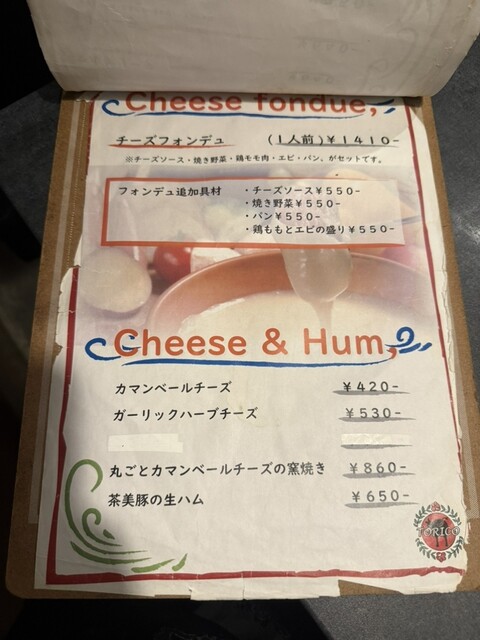 Cheese fondue,
チーズフォンデュ (1人前)￥1410-
※チーズソース・焼き野菜・鶏モモ肉・エビ・パン、がセットです。
フォンデュ追加具材 ・チーズソース￥550-
・焼き野菜￥550-
・パン￥550-
・鶏ももとエビの盛り￥550-
Cheese & Hum,
カマンベールチーズ ￥420-
ガーリックハーブチーズ ￥530-
丸ごとカマンベールチーズの窯焼き ￥860-
茶美豚の生ハム ￥650-
TORICO